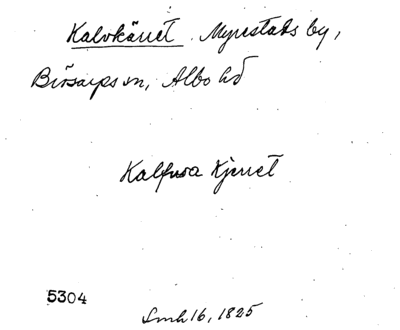 Kalvkärret Myrestads by,
Bösarps sn, Albo hd
Kalfwa Kjerret
5304
Smh 16, 1825